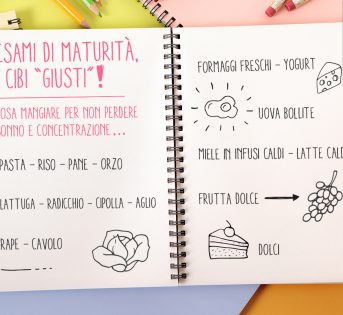 ESAMI DI MATURITÀ,
CIBI "GIUSTI"!
OSA MANGIARE PER NON PERDERE
ONNO E CONCENTRAZIONE...
PASTA - RISO - PANE - ORZO
LATTUGA - RADICCHIO - CIPOLLA - AGLIO
RAPE - CAVOLO
FORMAGGI FRESCHI - YOGURT
UOVA BOLLITE
MIELE IN INFUSI CALDI - LATTE CALD
FRUTTA DOLCE
DOLCI